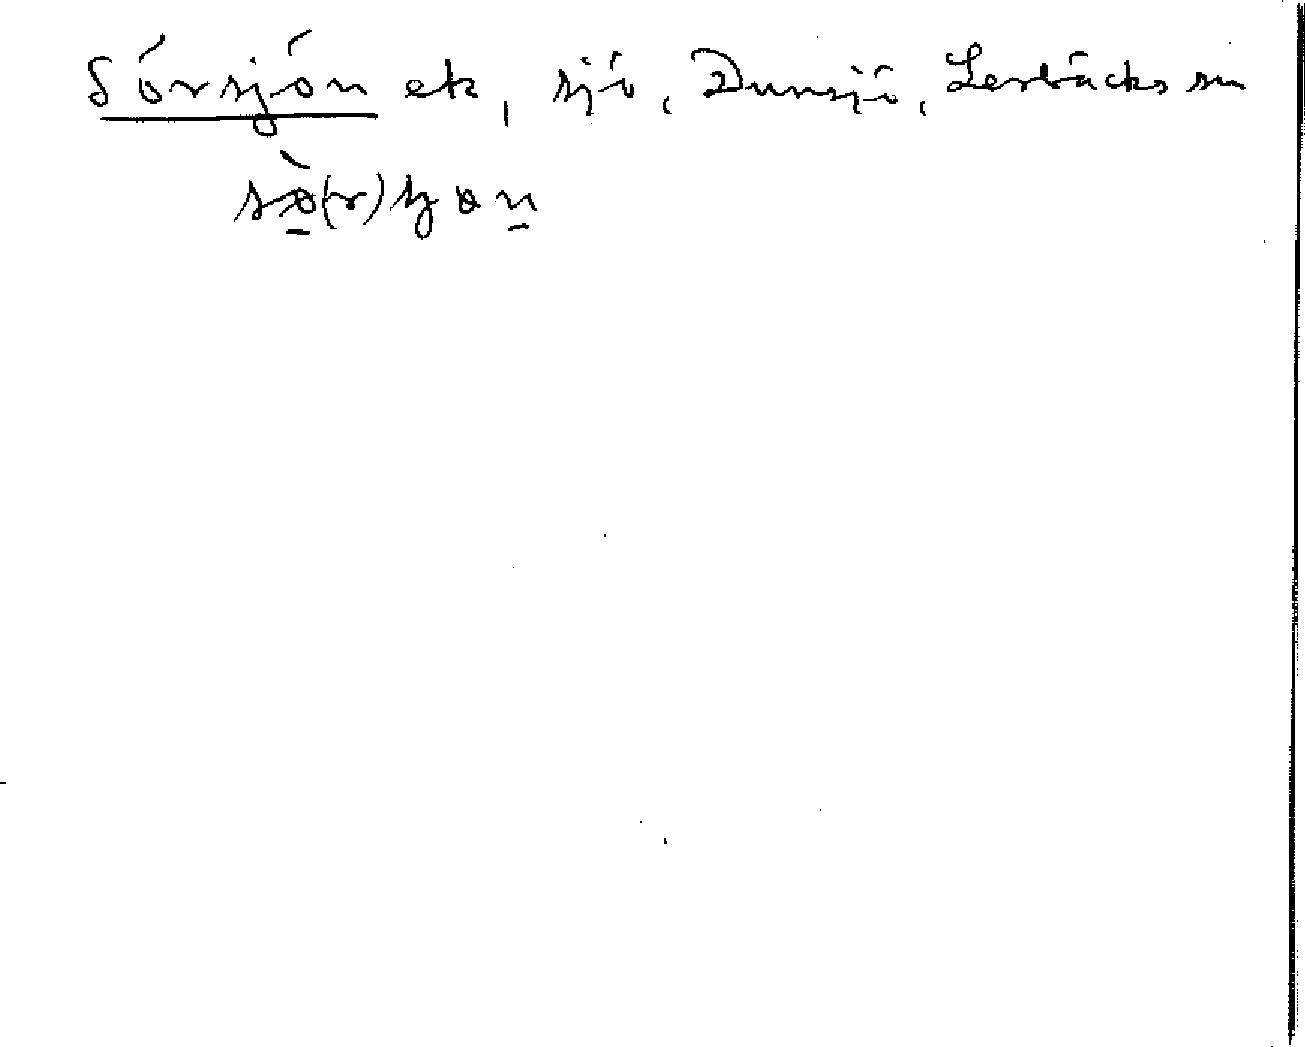 Sörsjön ek, sjö, Dunsjö, Lerbäcks sn
sö̀(r)sjön